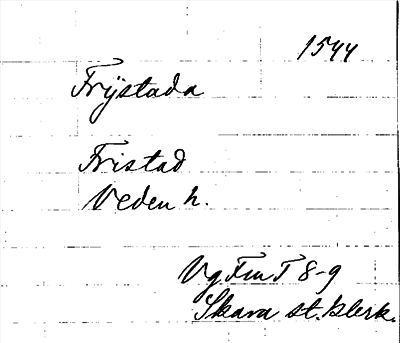 1544
Frÿstada
Fristad
Veden h.
Vg. Fm T 8-9
Skara st. klerk.